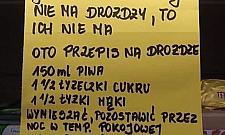 NIE MA DROŻDŻY, TO
ICH NIE MA
OTO PRZEPIS NA DROŻDŻE
150 ml PIWA
1 1/2 ŁYŻECZKI CUKRU
1 1/2 ŁYŻKI MĄKI
WYMIESZAĆ, POZOSTAWIĆ PRZEZ
NOC W TEMP. POKOJOWEJ